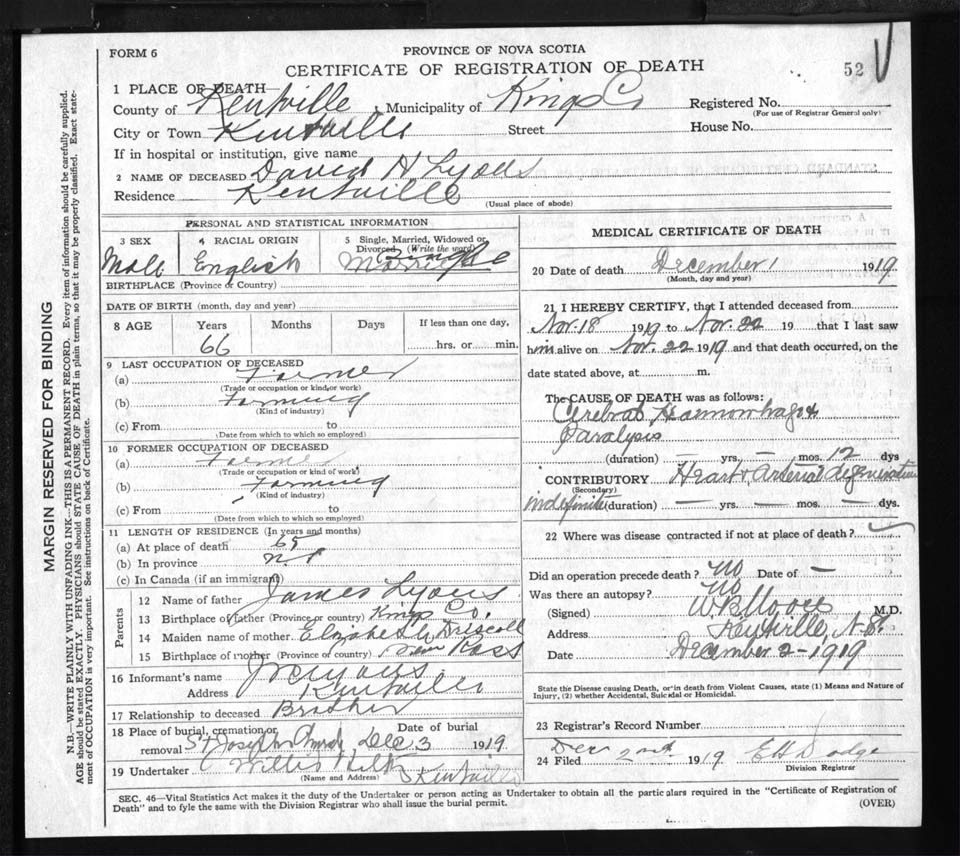 FORM 6
PROVINCE OF NOVA SCOTIA
CERTIFICATE OF REGISTRATION OF DEATH
52
1 PLACE OF DEATH—
County of Kentville, Municipality of Kings Co Registered No.
(For use of Registrar General only)
City or Town Kentville Street House No.
If in hospital or institution, give name
2 NAME OF DECEASED David H Lyons
Residence Kentville
(Usual place of abode)
PERSONAL AND STATISTICAL INFORMATION
3 SEX 4 RACIAL ORIGIN 5 Single, Married, Widowed or Divorced (Write the word)
Male English Married Single
BIRTHPLACE (Province or Country)
DATE OF BIRTH (month, day and year)
8 AGE Years Months Days If less than one day,
66 hrs. or min.
9 LAST OCCUPATION OF DECEASED
(a) Farmer
(Trade or occupation or kind or work)
(b) Farming
(Kind of industry)
(c) From to
(Date from which to which so employed)
10 FORMER OCCUPATION OF DECEASED
(a)
(Trade or occupation or kind of work)
(b) Farming
(Kind of industry)
(c) From to
(Date from which to which so employed)
11 LENGTH OF RESIDENCE (In years and months)
(a) At place of death 65
(b) In province
(c) In Canada (if an immigrant)
Parents
12 Name of father James Lyons
13 Birthplace of father (Province or country) Kings Co.
14 Maiden name of mother Elizabeth Driscoll
15 Birthplace of mother (Province or country) New Ross
16 Informant's name Lyons
Address Kentville
17 Relationship to deceased Brother
18 Place of burial, cremation or removal St Joseph Date of burial Dec 3 1919
19 Undertaker Willis Kentville
(Name and Address)
MEDICAL CERTIFICATE OF DEATH
20 Date of death December 1 1919
(Month, day and year)
21 I HEREBY CERTIFY, that I attended deceased from
Nov. 18 1919 to Nov. 22 19 that I last saw
him alive on Nov. 22 1919 and that death occurred, on the
date stated above, at m.
The CAUSE OF DEATH was as follows:
Cerebral Haemorrhage &
Paralysis
(duration) — yrs. — mos. 12 dys
CONTRIBUTORY Heart & Arterial degeneration
(Secondary)
indefinite (duration) — yrs. — mos. — dys.
22 Where was disease contracted if not at place of death?
Did an operation precede death? no Date of —
Was there an autopsy? no
(Signed) W B Moore M.D.
Address Kentville, N.S.
Date December 2-1919
State the Disease causing Death, or in death from Violent Causes, state (1) Means and Nature of
Injury, (2) whether Accidental, Suicidal or Homicidal.
23 Registrar's Record Number
24 Filed Dec 2nd 1919. E H Dodge
Division Registrar
SEC. 46—Vital Statistics Act makes it the duty of the Undertaker or person acting as Undertaker to obtain all the particulars required in the "Certificate of Registration of
Death" and to fyle the same with the Division Registrar who shall issue the burial permit.
(OVER)
MARGIN RESERVED FOR BINDING
N.B.—WRITE PLAINLY WITH UNFADING INK—THIS IS A PERMANENT RECORD. Every item of information should be carefully supplied.
AGE should be stated EXACTLY. PHYSICIANS should STATE CAUSE OF DEATH in plain terms, so that it may be properly classified. Exact state-
ment of OCCUPATION is very important. See instructions on back of Certificate.